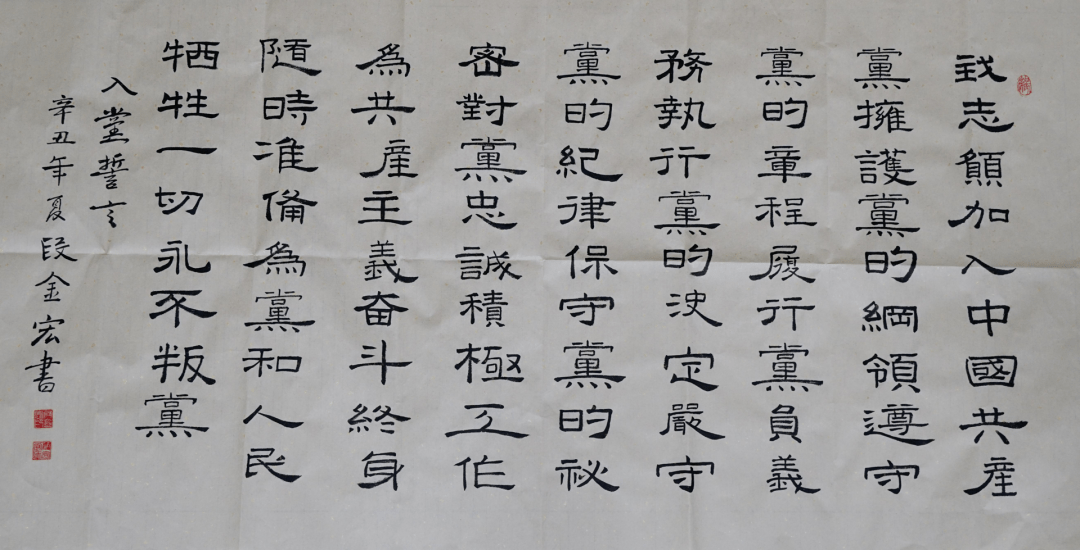 我志願加入中國共産
黨擁護黨的綱領遵守
黨的章程履行黨員義
務執行黨的決定嚴守
黨的紀律保守黨的祕
密對黨忠誠積極工作
為共産主義奋斗終身
隨時准備為黨和人民
牺牲一切永不叛黨
入党誓言
辛丑年夏段金宏書